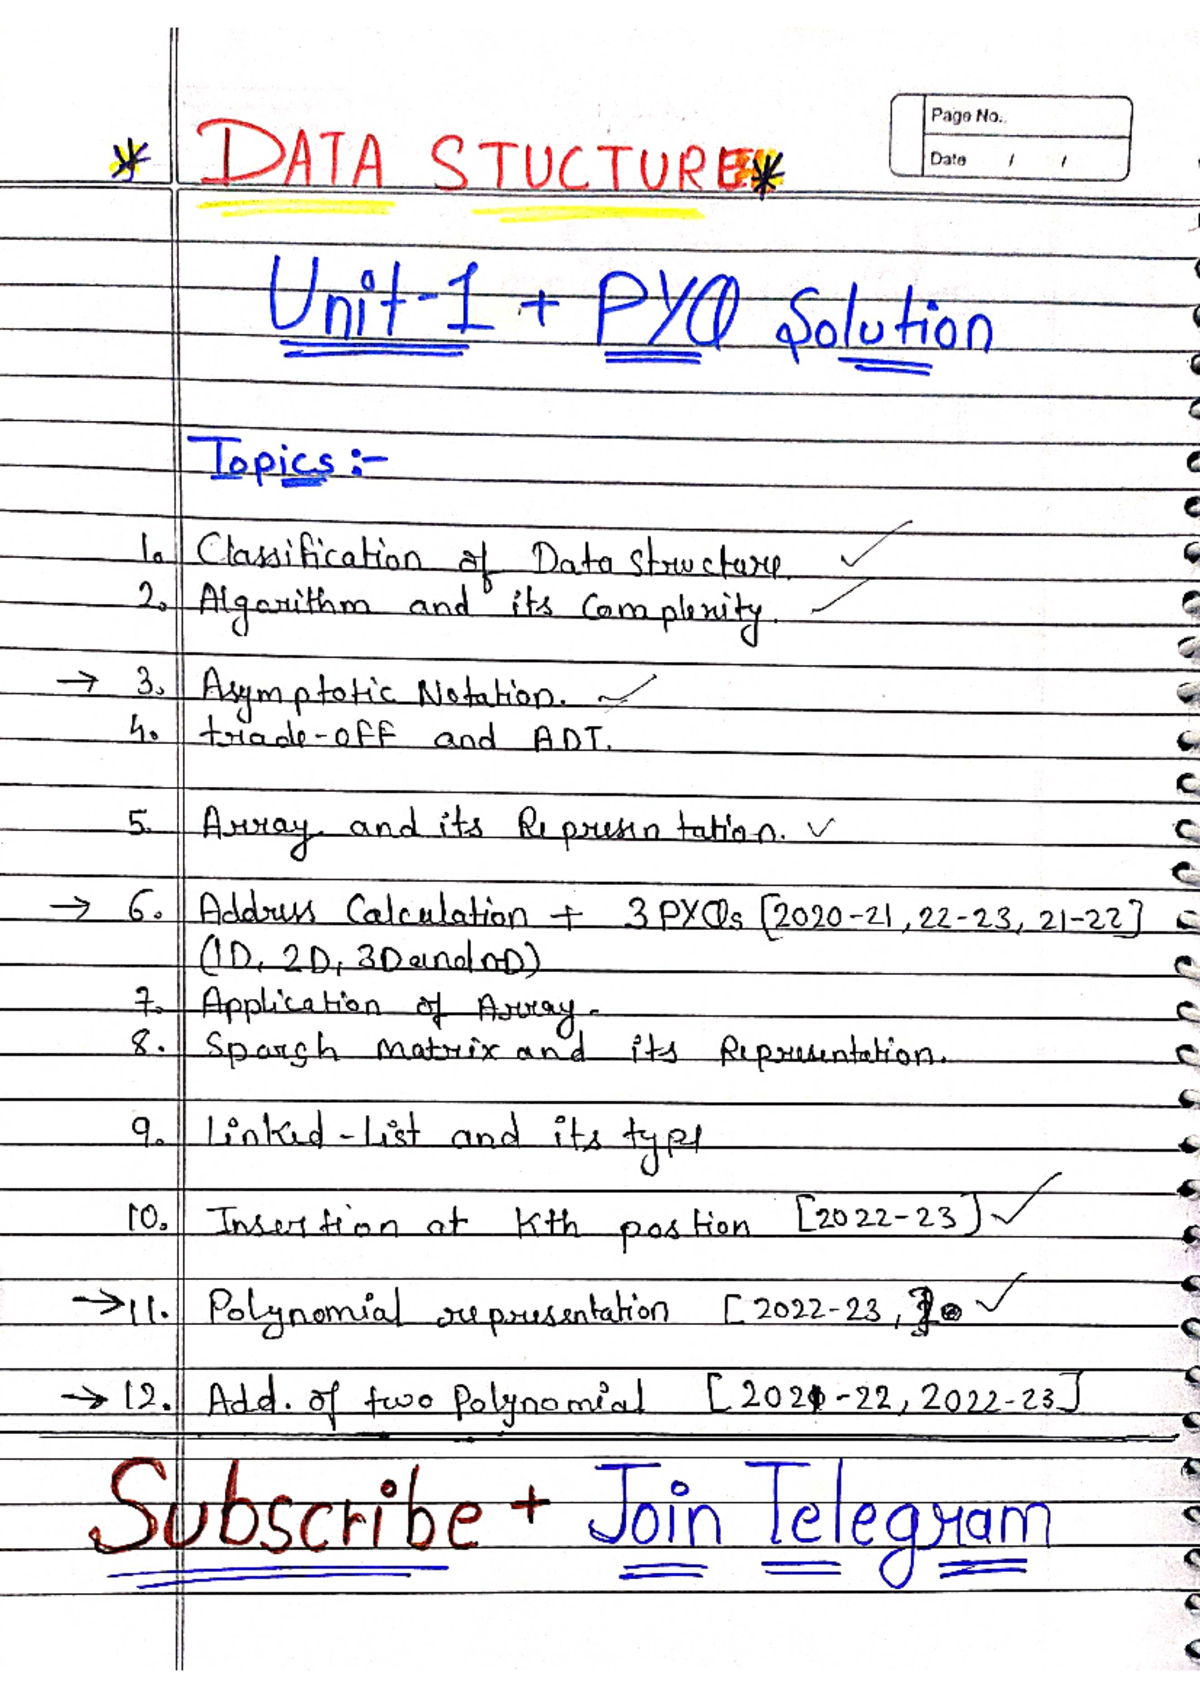 Page No.
Date / /
* DATA STUCTURE *
Unit-1 + PYQ Solution
Topics :-
1. Classification of Data Structure. ✓
2. Algorithm and its Complexity. ✓
→ 3. Asymptotic Notation. ✓
4. trade-off and ADT.
5. Array and its Representation. ✓
→ 6. Address Calculation + 3 PYQs [2020-21, 22-23, 21-22]
(1D, 2D, 3D and nD)
7. Application of Array.
8. Sparsh Matrix and its Representation.
9. Linked-List and its type
10. Insertion at Kth postion [2022-23] ✓
→ 11. Polynomial representation [2022-23, ✓
→ 12. Add. of two Polynomial [2021-22, 2022-23]
Subscribe + Join Telegram